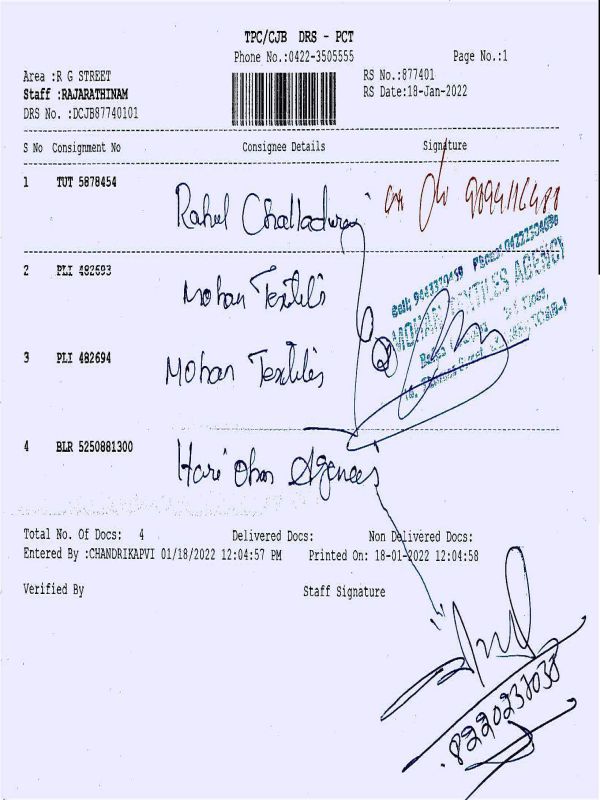 TPC/CJB DRS - PCT
Phone No.:0422-3505555
Page No.:1
Area :R G STREET
RS No.:877401
Staff :RAJARATHINAM
RS Date:18-Jan-2022
DRS No. :DCJB87740101
S No Consignment No Consignee Details Signature
1 TUT 5878454 Rahul
2 PLI 482693 Mohan Textiles
MOHAN TEXTILES AGENCY
3 PLI 482694 Mohan Textiles
4 BLR 5250881300 Hari Ohm Agencies
Total No. Of Docs: 4 Delivered Docs: Non Delivered Docs:
Entered By :CHANDRIKAPVI 01/18/2022 12:04:57 PM Printed On: 18-01-2022 12:04:58
Verified By Staff Signature